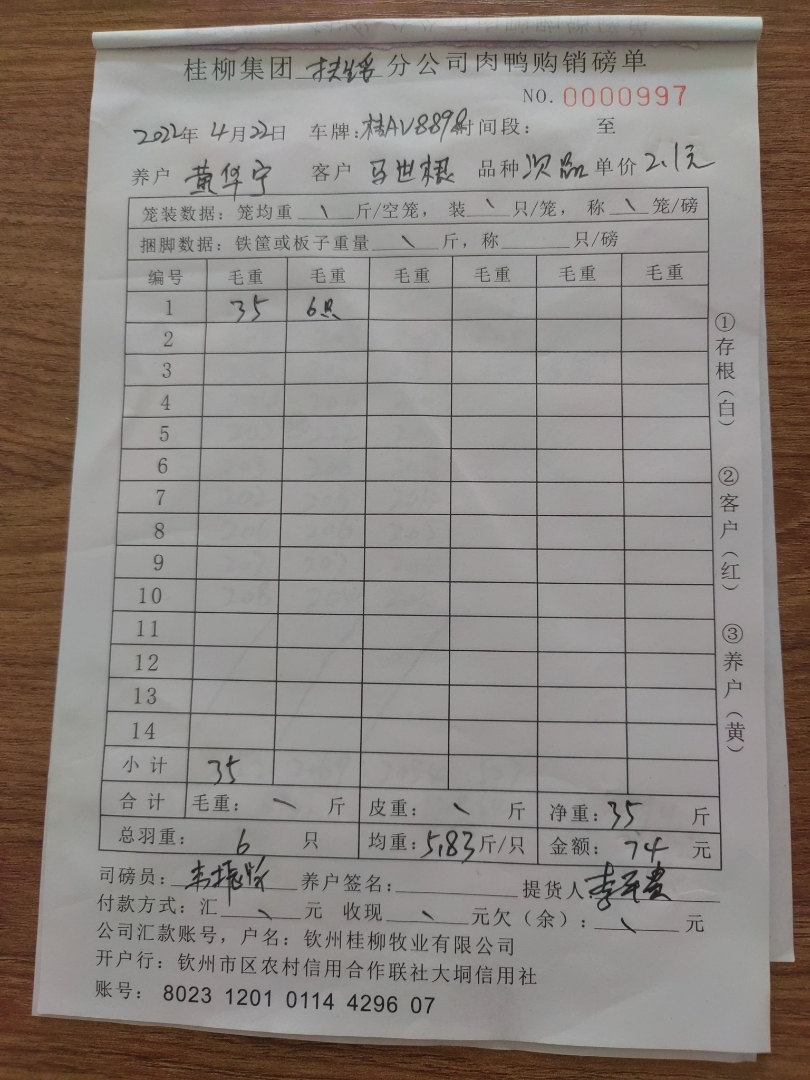 桂柳集团 扶绥 分公司肉鸭购销磅单
NO. 0000997
2022年 4月22日 车牌:桂AV8898 时间段: 至
养户 黄华宁 客户 马世根 品种 次品 单价 2.1元
笼装数据:笼均重 \ 斤/空笼,装 \ 只/笼,称 \ 笼/磅
捆脚数据:铁筐或板子重量 \ 斤,称 只/磅
编号 毛重 毛重 毛重 毛重 毛重 毛重
1 35 6只
2
3
4
5
6
7
8
9
10
11
12
13
14
小计 35
合计 毛重: \ 斤 皮重: \ 斤 净重:35 斤
总羽重: 6 只 均重:5.83斤/只 金额:74 元
司磅员: 养户签名: 提货人:
付款方式:汇 \ 元 收现 \ 元欠(余): \ 元
公司汇款账号,户名:钦州桂柳牧业有限公司
开户行:钦州市区农村信用合作联社大垌信用社
账号: 8023 1201 0114 4296 07
①存根(白)
②客户(红)
③养户(黄)